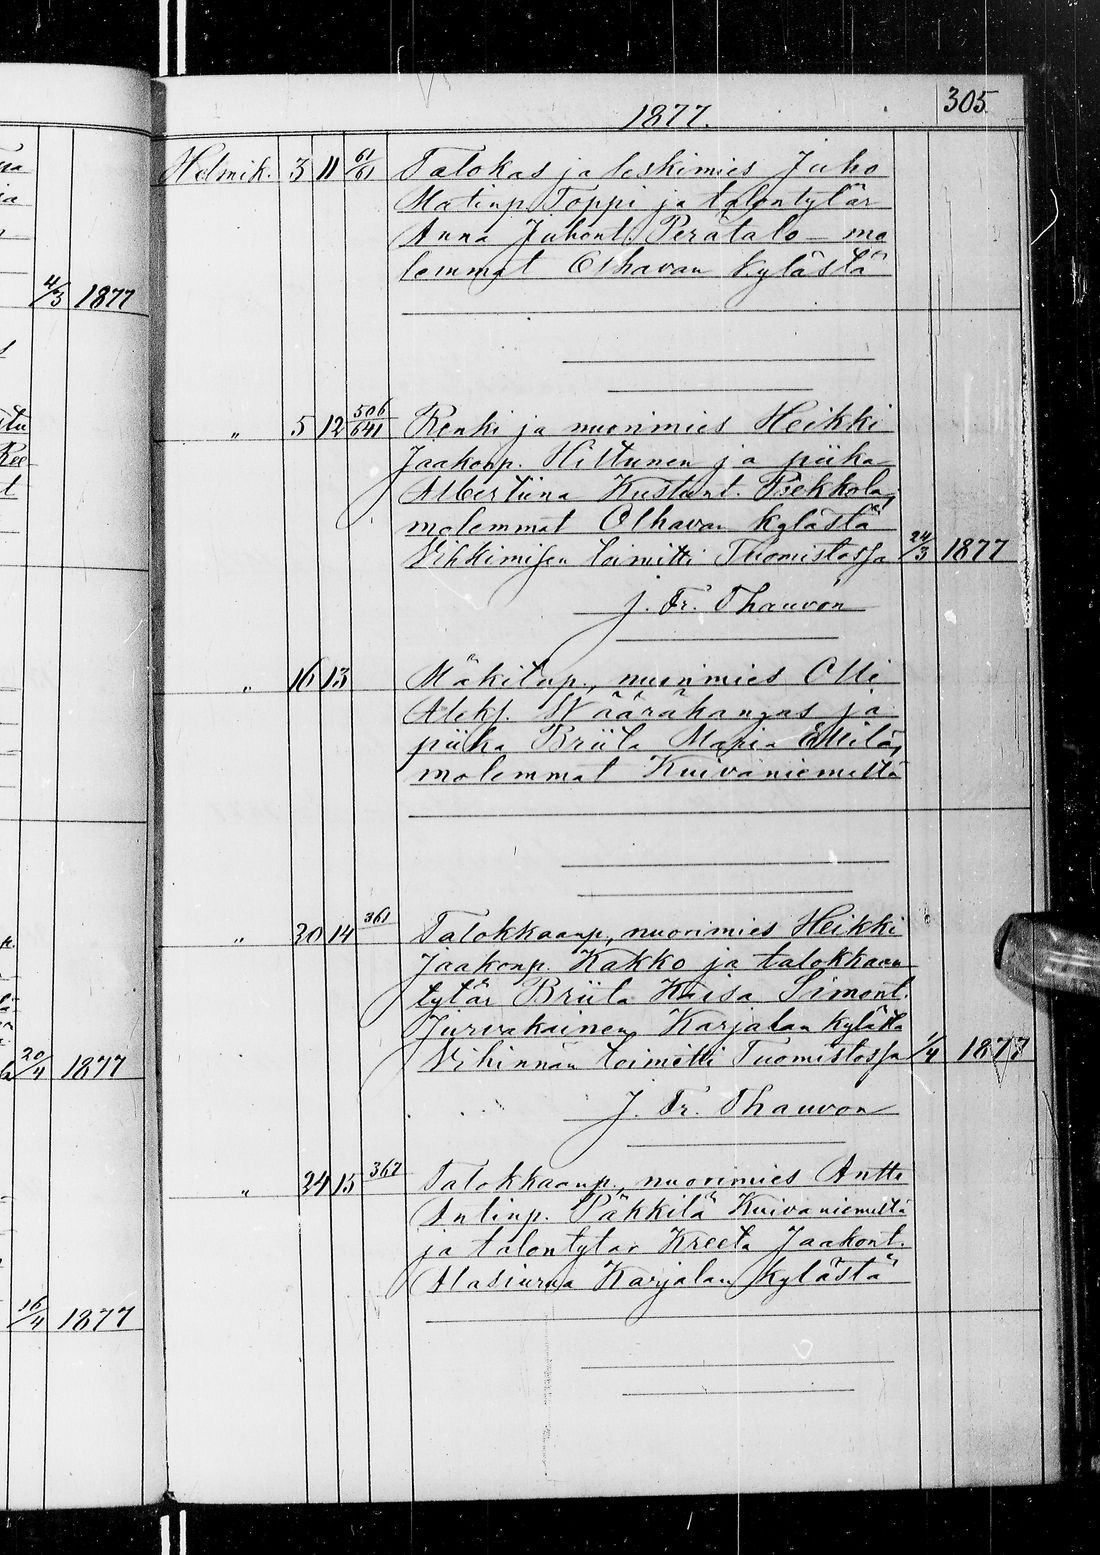 305
1877.
Helmik. 3 11 61/61 Talokas ja leskimies Juho
Matinp. Toppi ja talontytär
Anna Juhont. Perätalo mo
lemmat Olhavan kylästä
4/3 1877
" 5 12 506/641 Renki ja nuorimies Heikki
Jaakonp. Hiltunen ja piika
Albertiina Kustant. Pekkola,
molemmat Olhavan kylästä
Vihkimisen toimitti Tuomistossa 24/3 1877
J. Fr. Thauvon
" 16 13 Mäkitup., nuorimies Olli
Aleks. Wääräkangas ja
piika Briita Maria Mikilä,
molemmat Kuivaniemestä
" 20 14 361 Talokkaanp., nuorimies Heikki
Jaakonp. Kakko ja talokkaan
tytär Briita Kaisa Simont.
Jurvakainen Karjalan kylästä
Vihinnän toimitti Tuomistossa 1/4 1877
20/4 1877
J. Fr. Thauvon
" 24 15 367 Talokkaanp., nuorimies Antti
Antinp. Päkkilä Kuivaniemestä
ja talontytär Kreeta Jaakont.
Alasiurua Karjalan kylästä
16/4 1877